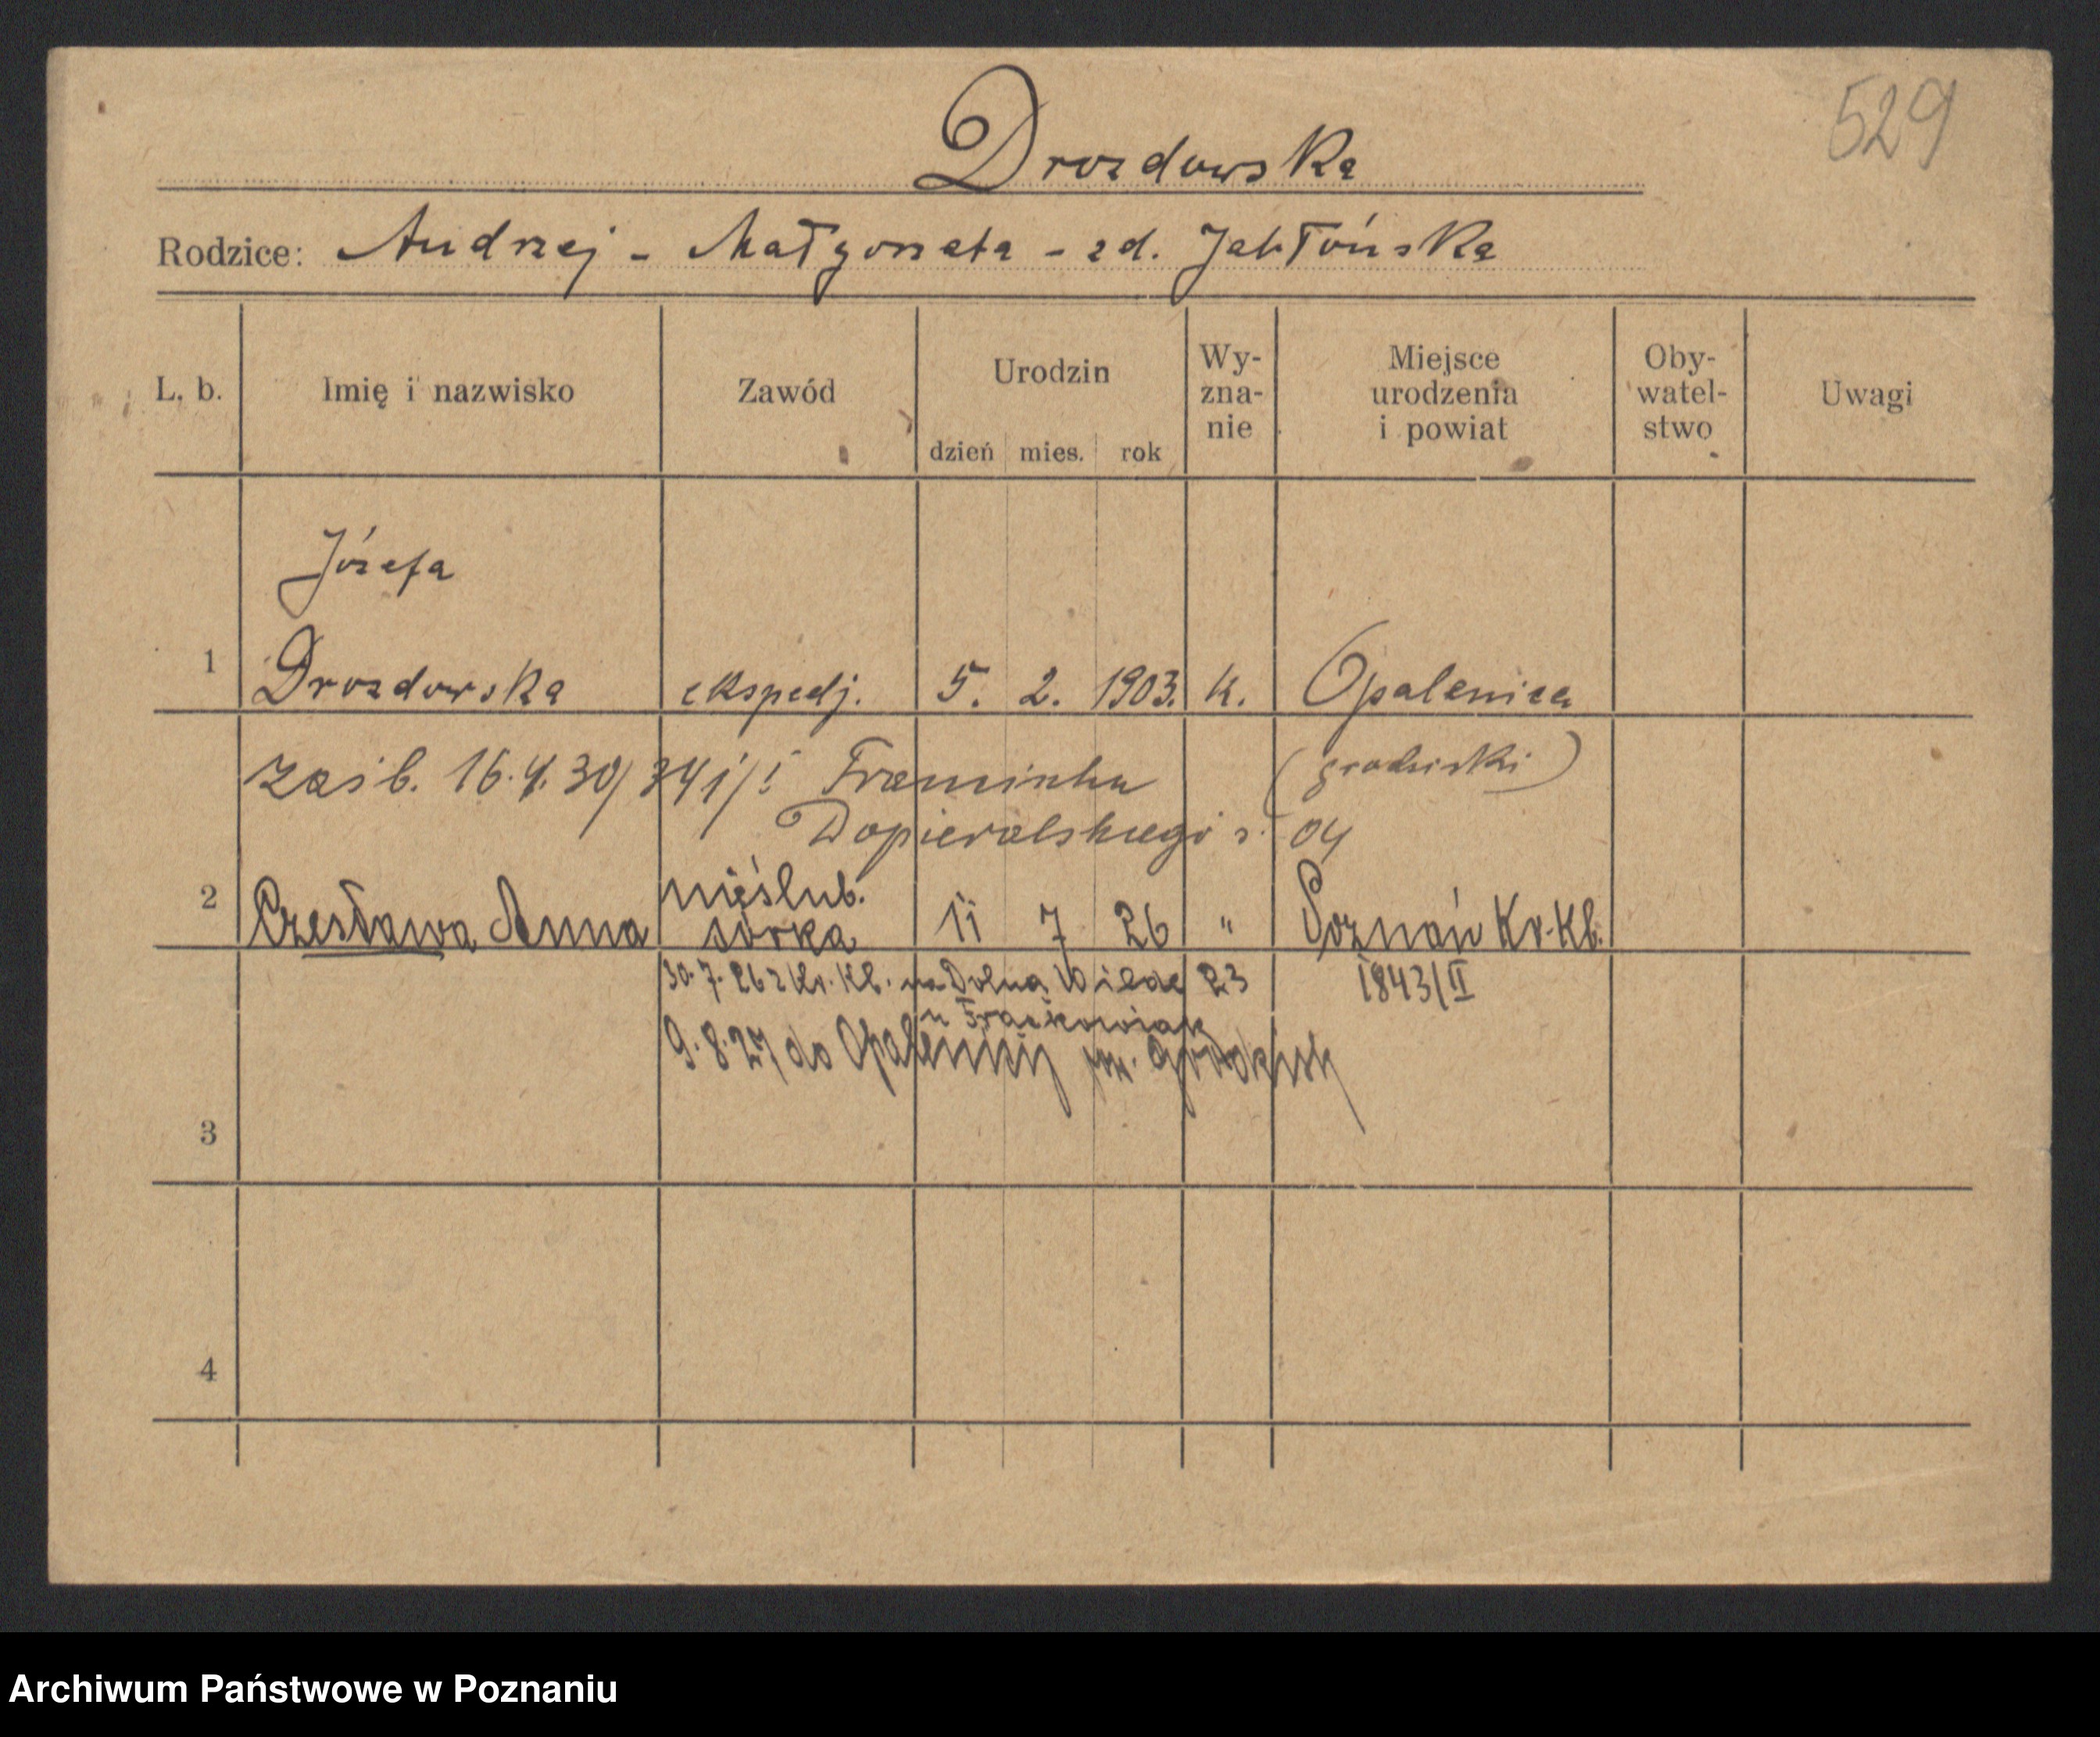 529
Drozdowska
Rodzice: Andrzej - Małgorzata - zd. Jabłońska
L. b. Imię i nazwisko Zawód Urodzin dzień mies. rok Wy-zna-nie Miejsce urodzenia i powiat Oby-watel-stwo Uwagi
Józefa
1 Drozdowska ekspedj. 5. 2. 1903. k. Opalenica
(grodziski)
zaśb. 16.4.30/ 341/I Franciszka
Dopieralskiego r. 04
nieślub.
2 Czesława Anna córka 11 7 26 " Poznań Kr. Kb.
30.7.26 z Kr. Kb. na Dolną Wildę 23 1843/II
u Frąckowiak
9.8.27 do Opalenicy pow. Grodzisk
3
4
Archiwum Państwowe w Poznaniu